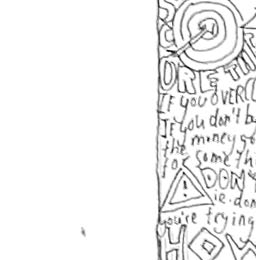 ORE THI
IF YOU OVERC
If you don't b
the money yo
for some th
DON'
ie. don
you're trying
HOW